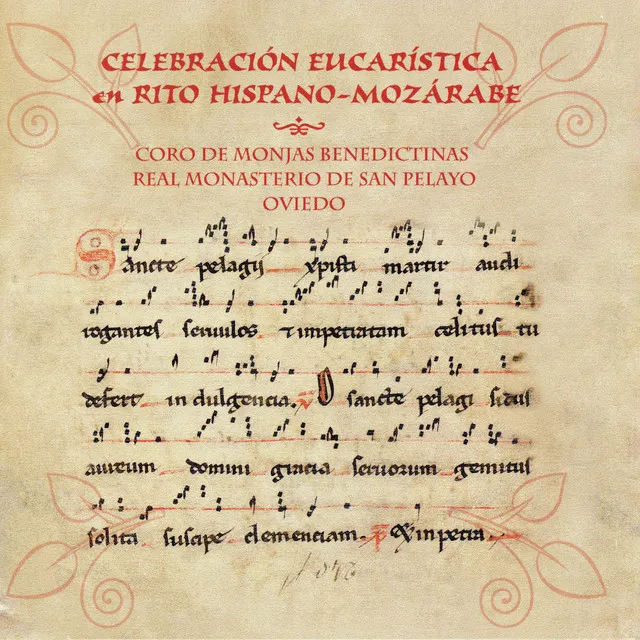 CELEBRACIÓN EUCARÍSTICA
en RITO HISPANO-MOZÁRABE
CORO DE MONJAS BENEDICTINAS
REAL MONASTERIO DE SAN PELAYO
OVIEDO
Sancte pelagij xpisti martir audi
rogantes seruulos et impetratam celitus tu
defert indulgencia. O sancte pelagi sidus
aureum domini gracia seruorum gemitus
solita suscipe clemenciam.